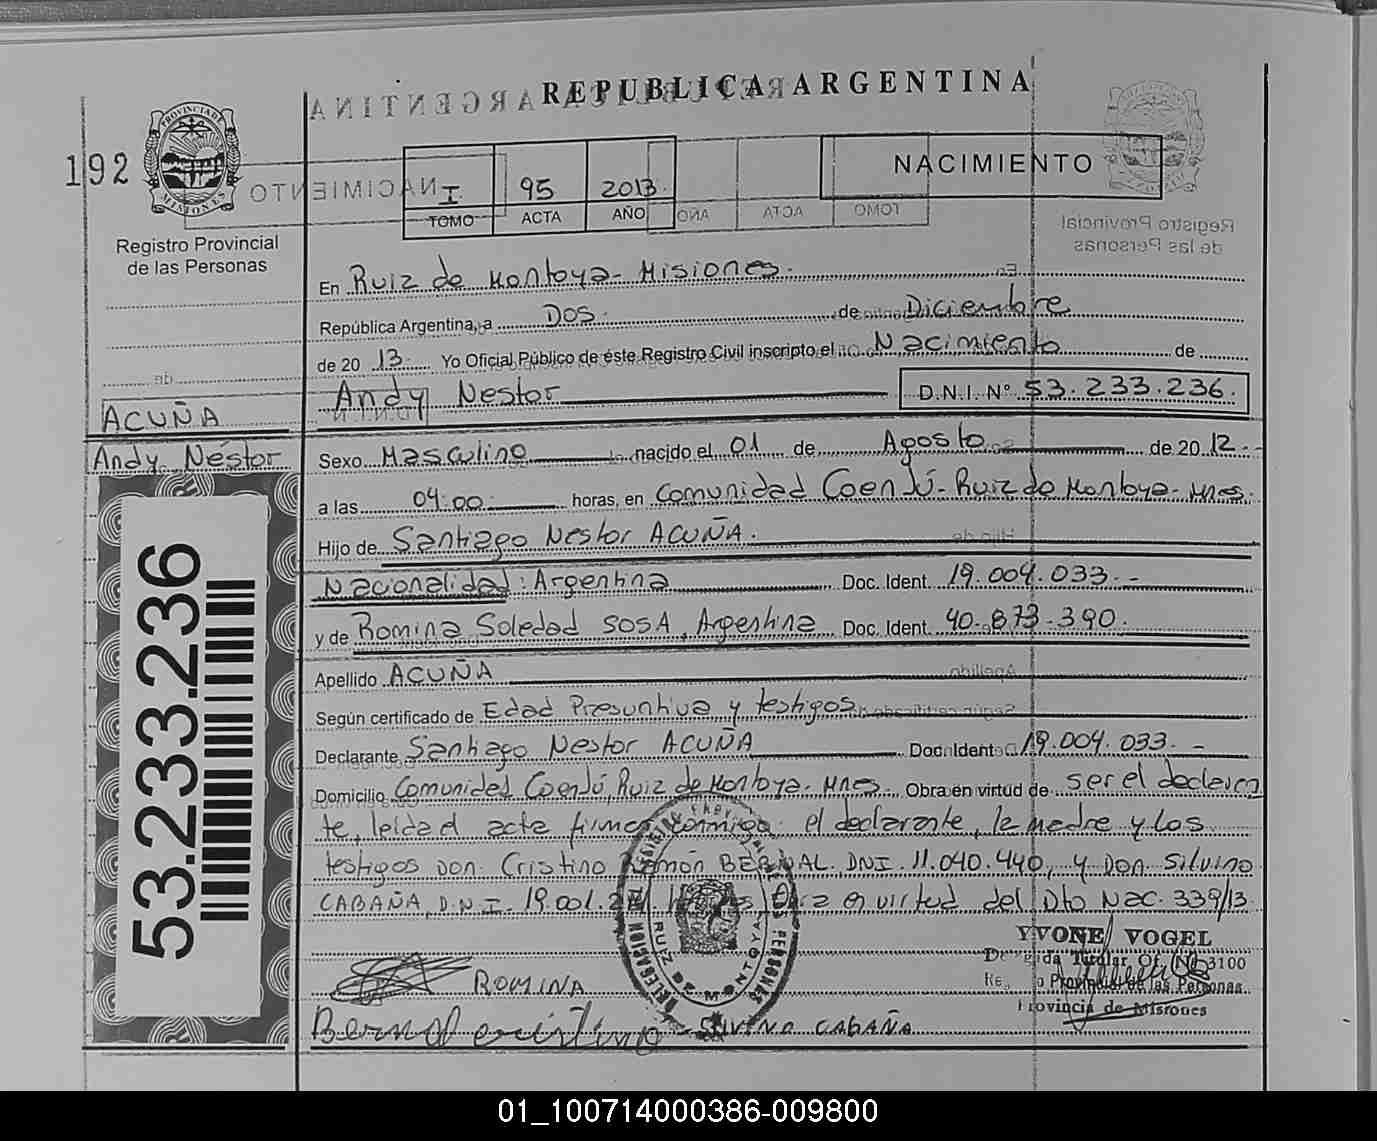 REPUBLICA ARGENTINA
192
PROVINCIA DE MISIONES
Registro Provincial
de las Personas
I 95 2013
TOMO ACTA AÑO
NACIMIENTO
En Ruiz de Montoya - Misiones.
República Argentina, a Dos. de Diciembre
de 20 13. Yo Oficial Público de éste Registro Civil inscripto el Nacimiento de
Andy Nestor D.N.I. N° 53.233.236.
ACUÑA
Andy Néstor
53.233.236
Sexo Masculino nacido el 01 de Agosto de 20 12.-
a las 04:00 horas, en Comunidad Coendú - Ruiz de Montoya - Mnes.
Hijo de Santiago Nestor ACUÑA.
Nacionalidad: Argentina Doc. Ident. 19.004.033.-
y de Romina Soledad SOSA, Argentina Doc. Ident. 40.873.390.
Apellido ACUÑA
Según certificado de Edad Presuntiva y testigos
Declarante Santiago Nestor ACUÑA Doc. Ident. 19.004.033.-
Domicilio Comunidad Coendú, Ruiz de Montoya - Mnes. Obra en virtud de ser el declaran
te, leida el acta firma conmigo el declarante, la madre y los
testigos Don Cristino Ramón BERNAL DNI. 11.040.440, y Don Silvino
CABAÑA, D.N.I. 19.001. en virtud del Dto Nac. 339/13
DELEGACION DE LAS PERSONAS
RUIZ DE MONTOYA
YVONE VOGEL
Titular Of. 3100
Provincial de las Personas
Provincia de Misiones
ROMINA
Bernal cristino SILVINO CABAÑA
01_100714000386-009800